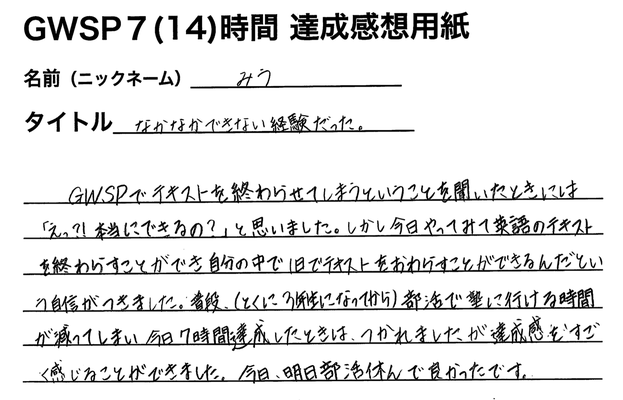 GWSP7(14)時間 達成感想用紙
名前（ニックネーム） みう
タイトル なかなかできない経験だった。
GWSPでテキストを終わらせてしまうということを聞いたときには
「えっ?! 本当にできるの?」と思いました。しかし今日やってみて英語のテキスト
を終わらすことができ自分の中で1日でテキストをおわらすことができるんだとい
う自信がつきました。普段、(とくに3年生になってから) 部活で塾に行ける時間
が減ってしまい今日7時間達成したときは、つかれましたが達成感をすご
く感じることができました。今日、明日部活休んで良かったです。